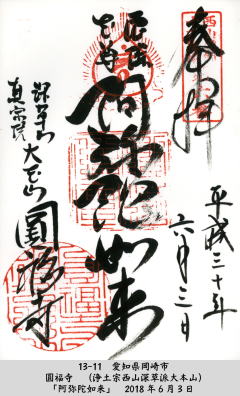 奉拝
平成三十年
六月三日
阿弥陀如来
深草山
真宗院
大本山
圓福寺
13-11　愛知県岡崎市
圓福寺　（浄土宗西山深草派大本山）
「阿弥陀如来」　2018年6月3日